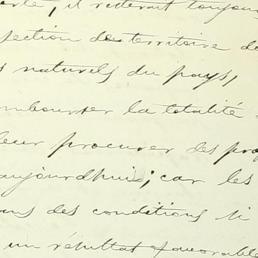 il resterait toujours
section du territoire de
naturels du pays,
la totalité
leur procurer des
aujourdhui; car les
des conditions si
un résultat favorable